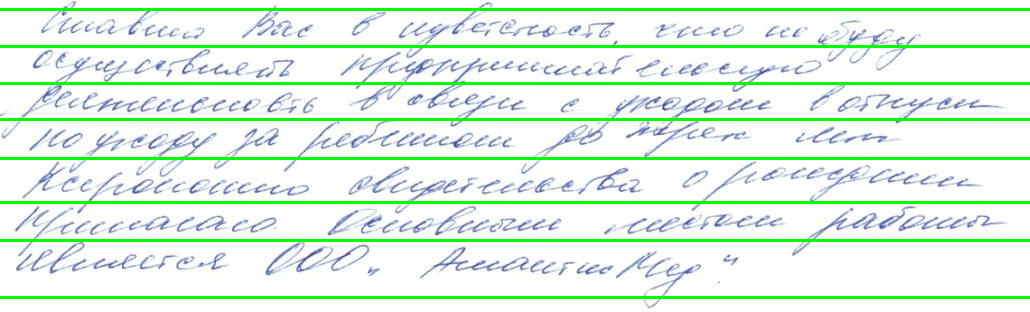 Ставлю Вас в известность, что не буду
осуществлять предпринимательскую
деятельность в связи с уходом в отпуск
по уходу за ребенком до трех лет
Ксерокопию свидетельства о рождении
прилагаю. Основным местом работы
является ООО „АтлантисМед".